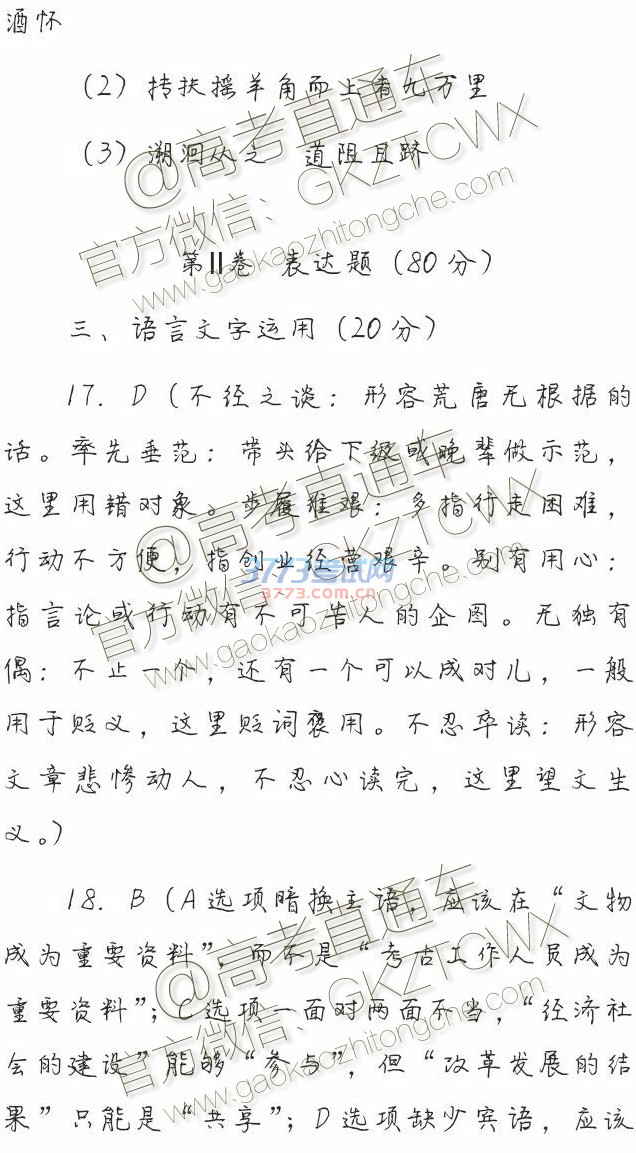 酒怀
（2）抟扶摇羊角而上者九万里
（3）溯洄从之　道阻且跻
第Ⅱ卷　表达题（80分）
三、语言文字运用（20分）
17．D（不经之谈：形容荒唐无根据的
话。率先垂范：带头给下级或晚辈做示范，
这里用错对象。步履维艰：多指行走困难，
行动不方便，指创业经营艰辛。别有用心：
指言论或行动有不可告人的企图。无独有
偶：不止一个，还有一个可以成对儿，一般
用于贬义，这里贬词褒用。不忍卒读：形容
文章悲惨动人，不忍心读完，这里望文生
义。）
18．B（A选项暗换主语，应该在“文物
成为重要资料”，而不是“考古工作人员成为
重要资料”；C选项一面对两面不当，“经济社
会的建设”能够“参与”，但“改革发展的结
果”只能是“共享”；D选项缺少宾语，应该
@高考直通车
官方微信：GKZTCWX
www.gaokaozhitongche.com
@高考直通车
官方微信：GKZTCWX
www.gaokaozhitongche.com
3773考试网
3773.com.cn
@高考直通车
官方微信：GKZTCWX
www.gaokaozhitongche.com